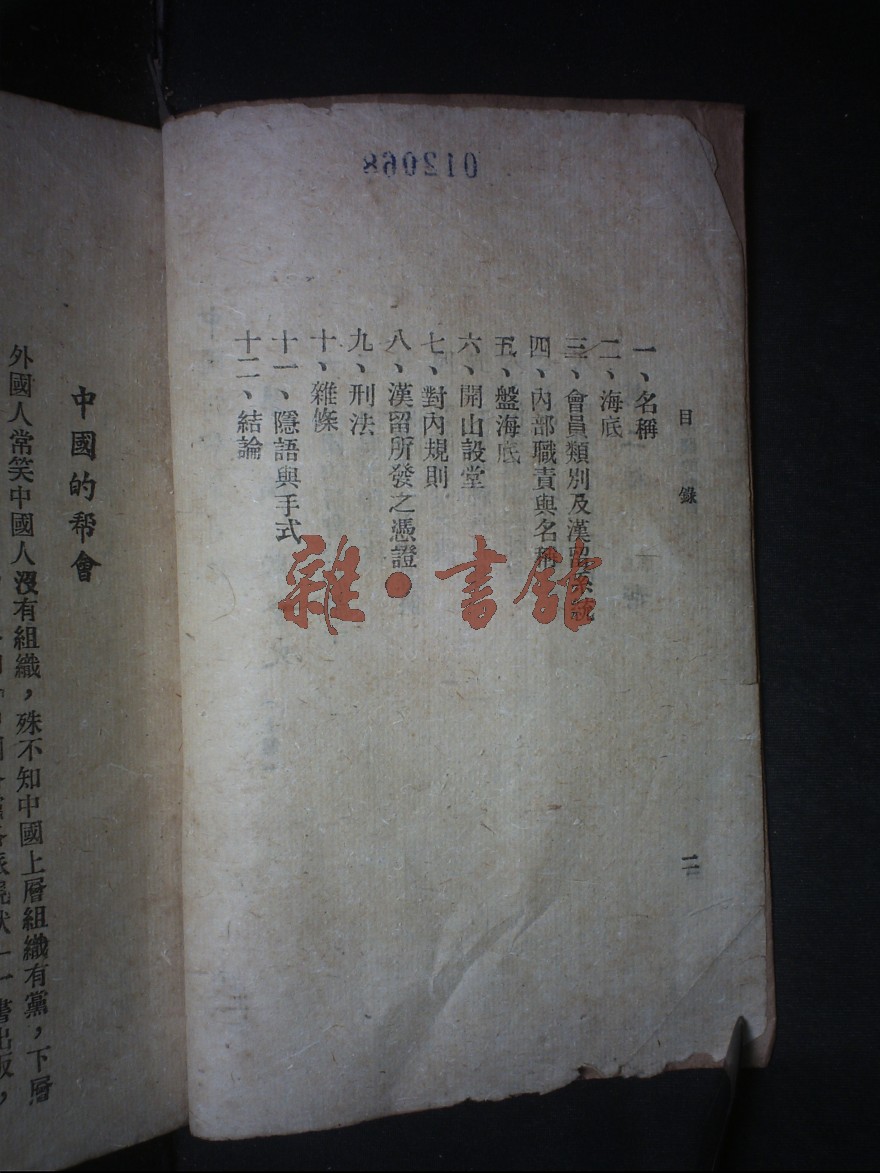 012068
目錄
一、名稱
二、海底
三、會員類別及漢留系統
四、內部職責與名稱
五、盤海底
六、開山設堂
七、對內規則
八、漢留所發之憑證
九、刑法
十、雜條
十一、隱語與手式
十二、結論
二
雜·書館
中國的幇會
外國人常笑中國人沒有組織，殊不知中國上層組織有黨，下層
書出版，